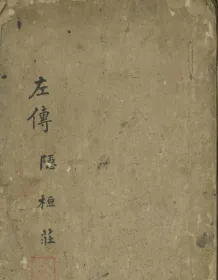 左傳 隱 桓 莊